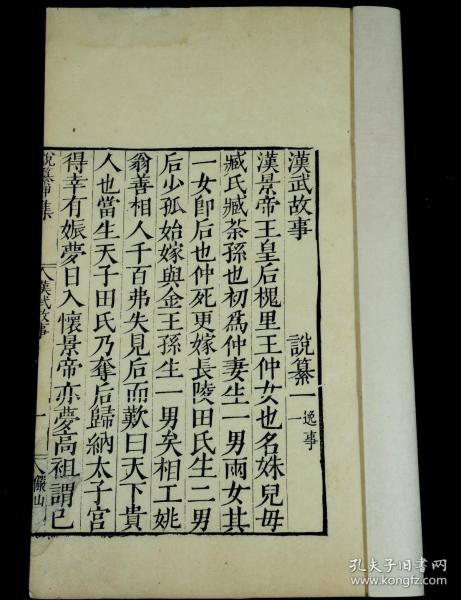 漢武故事　說纂一　逸事一
漢景帝王皇后槐里王仲女也名姝兒母
臧氏臧荼孫也初為仲妻生一男兩女其
一女即后也仲死更嫁長陵田氏生二男
后少孤始嫁與金王孫生一男矣相工姚
翁善相人千百弗失見后而歎曰天下貴
人也當生天子田氏乃奪后歸納太子宮
得幸有娠夢日入懷景帝亦夢高祖謂己
說纂甲集　漢武故事　一　儼山
孔夫子旧书网